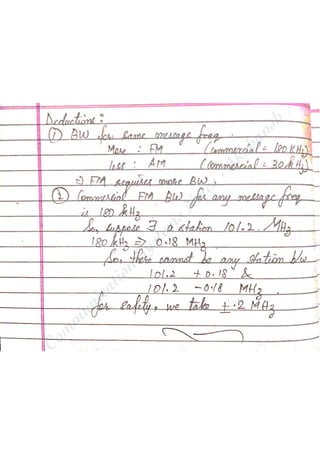 Deductions:
① BW for same message freq.
More : FM (Commercial = 180 KHz)
less : AM (Commercial = 30 kHz)
⇒ FM requires more BW.
② Commercial FM BW for any message freq
is 180 kHz
So, suppose ∃ a station 101.2 MHz
180 kHz ⇒ 0.18 MHz
So, there cannot be any station b/w
101.2 + 0.18 &
101.2 - 0.18 MHz
for safety, we take ± .2 MHz